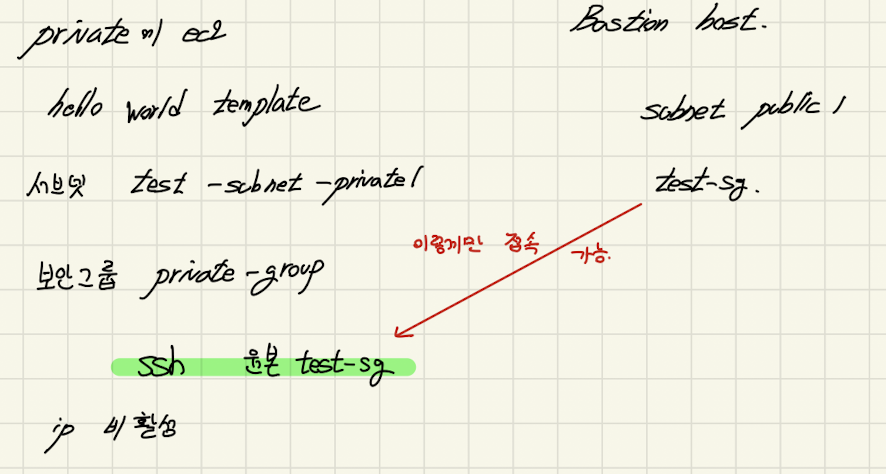 private에 ec2
Bastion host.
hello world template
subnet public 1
서브넷 test-subnet-private1
test-sg.
이렇게만 접속 가능.
보안그룹 private-group
ssh 원본 test-sg
ip 비활성